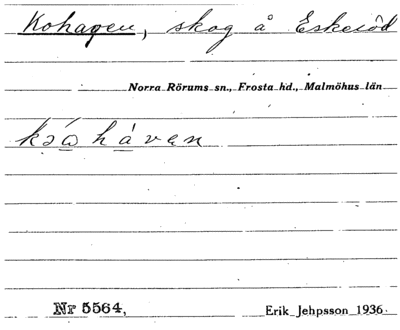 Kohagen, skog å Eskeröd
Norra Rörums sn., Frosta hd., Malmöhus län
Nr 5564,
Erik Jehpsson 1936.